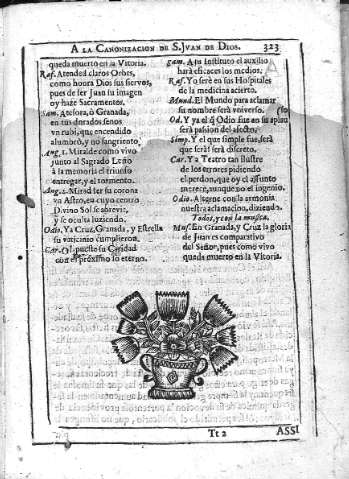 A LA CANONIZACION DE S. JVAN DE DIOS. 323
queda muerto en la Vitoria.
Raf. Atended claros Orbes,
como honra Dios sus siervos,
pues de ser Juan su imagen
oy haze Sacramentos.
Sam. Atesora, ò Granada,
en tus dorados senos
vn rubi, que encendido
alumbrò, y no sangriento.
Ang. 1. Miralde como vivo
junto al Sagrado Leño
à la memoria el triunfo
entregar, y el tormento.
Ang. 2. Mirad ser su corona
vn Astro, en cuyo centro
Divino Sol se abrevia,
y se oculta luziendo.
Odio. Ya Cruz, Granada, y Estrella
su vaticinio cumplieron.
Car. pues tu Caridad
con el próximo lo eterno.
Sam. A tu Instituto el auxilio
harà eficaces los medios.
Raf. Yo serè en sus Hospitales
de la medicina acierto.
Mund. El Mundo para aclamar
su nombre serà vniverso. (so
Od. Y ya el q̃ Odio fue en su aplau
serà passion del afecto.
Simp. Y el que simple fue, serà
que serà? serà discreto.
Car. Ya Teatro tan Ilustre
de los errores pidiendo
el perdon, que oy el assunto
merece, aunque no el ingenio.
Odio. Alterne con la armonia
nuestra aclamacion, diziendo.
Todos, y con la musica.
Mus. En Granada, y Cruz la gloria
de Juan es comparativo
del Señor, pues como vivo
queda muerto en la Vitoria.
Tt 2 ASSI